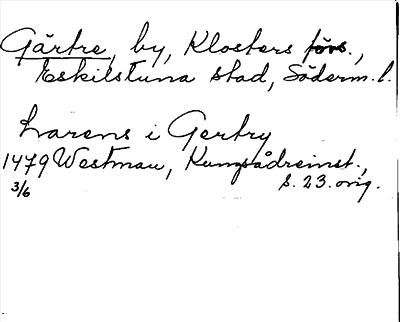 Gärtre, by, Klosters förs.,
Eskilstuna stad, Söderm. l.
Larens i Gertry
1479 Westman, Kungsådreinst.,
3/6 s. 23. orig.